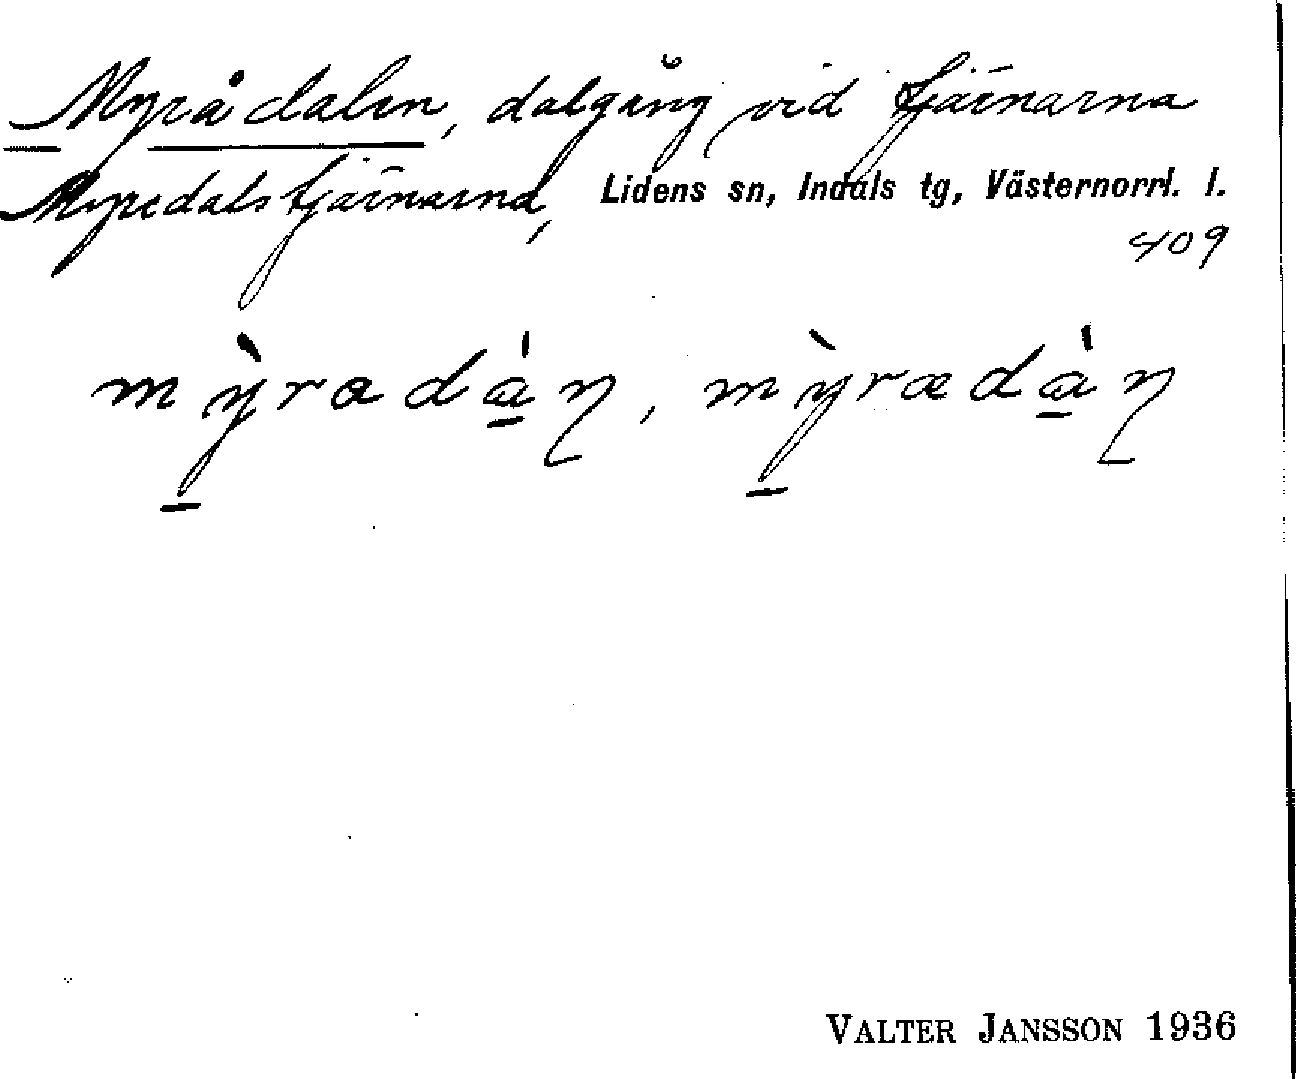 Myrådalen, dalgång vid tjärnarna
Myredalstjärnarna, Lidens sn, Indals tg, Västernorrl. l.
409
mỳradàɳ, mỳrædàɳ
VALTER JANSSON 1936